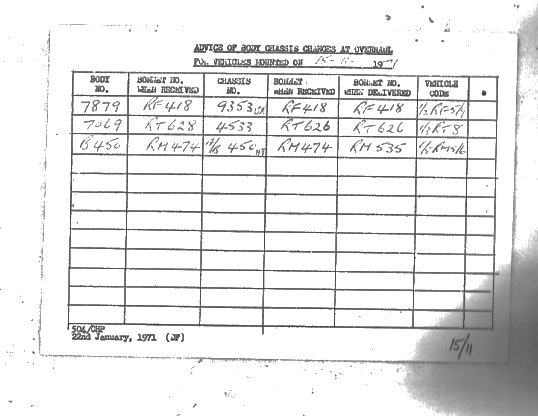 ADVICE OF BODY CHASSIS CHANGES AT OVERHAUL
FOR VEHICLES MOUNTED ON 15-11- 1971
BODY NO. BONNET NO. WHEN RECEIVED CHASSIS NO. BONNET WHEN RECEIVED BONNET NO. WHEN DELIVERED VEHICLE CODE *
7879 RF418 9353 RF418 RF418
7069 RT628 4533 RT626 RT626
B450 RM474 450 RM474 RM535
504/CHP
22nd January, 1971 (JF)
15/11